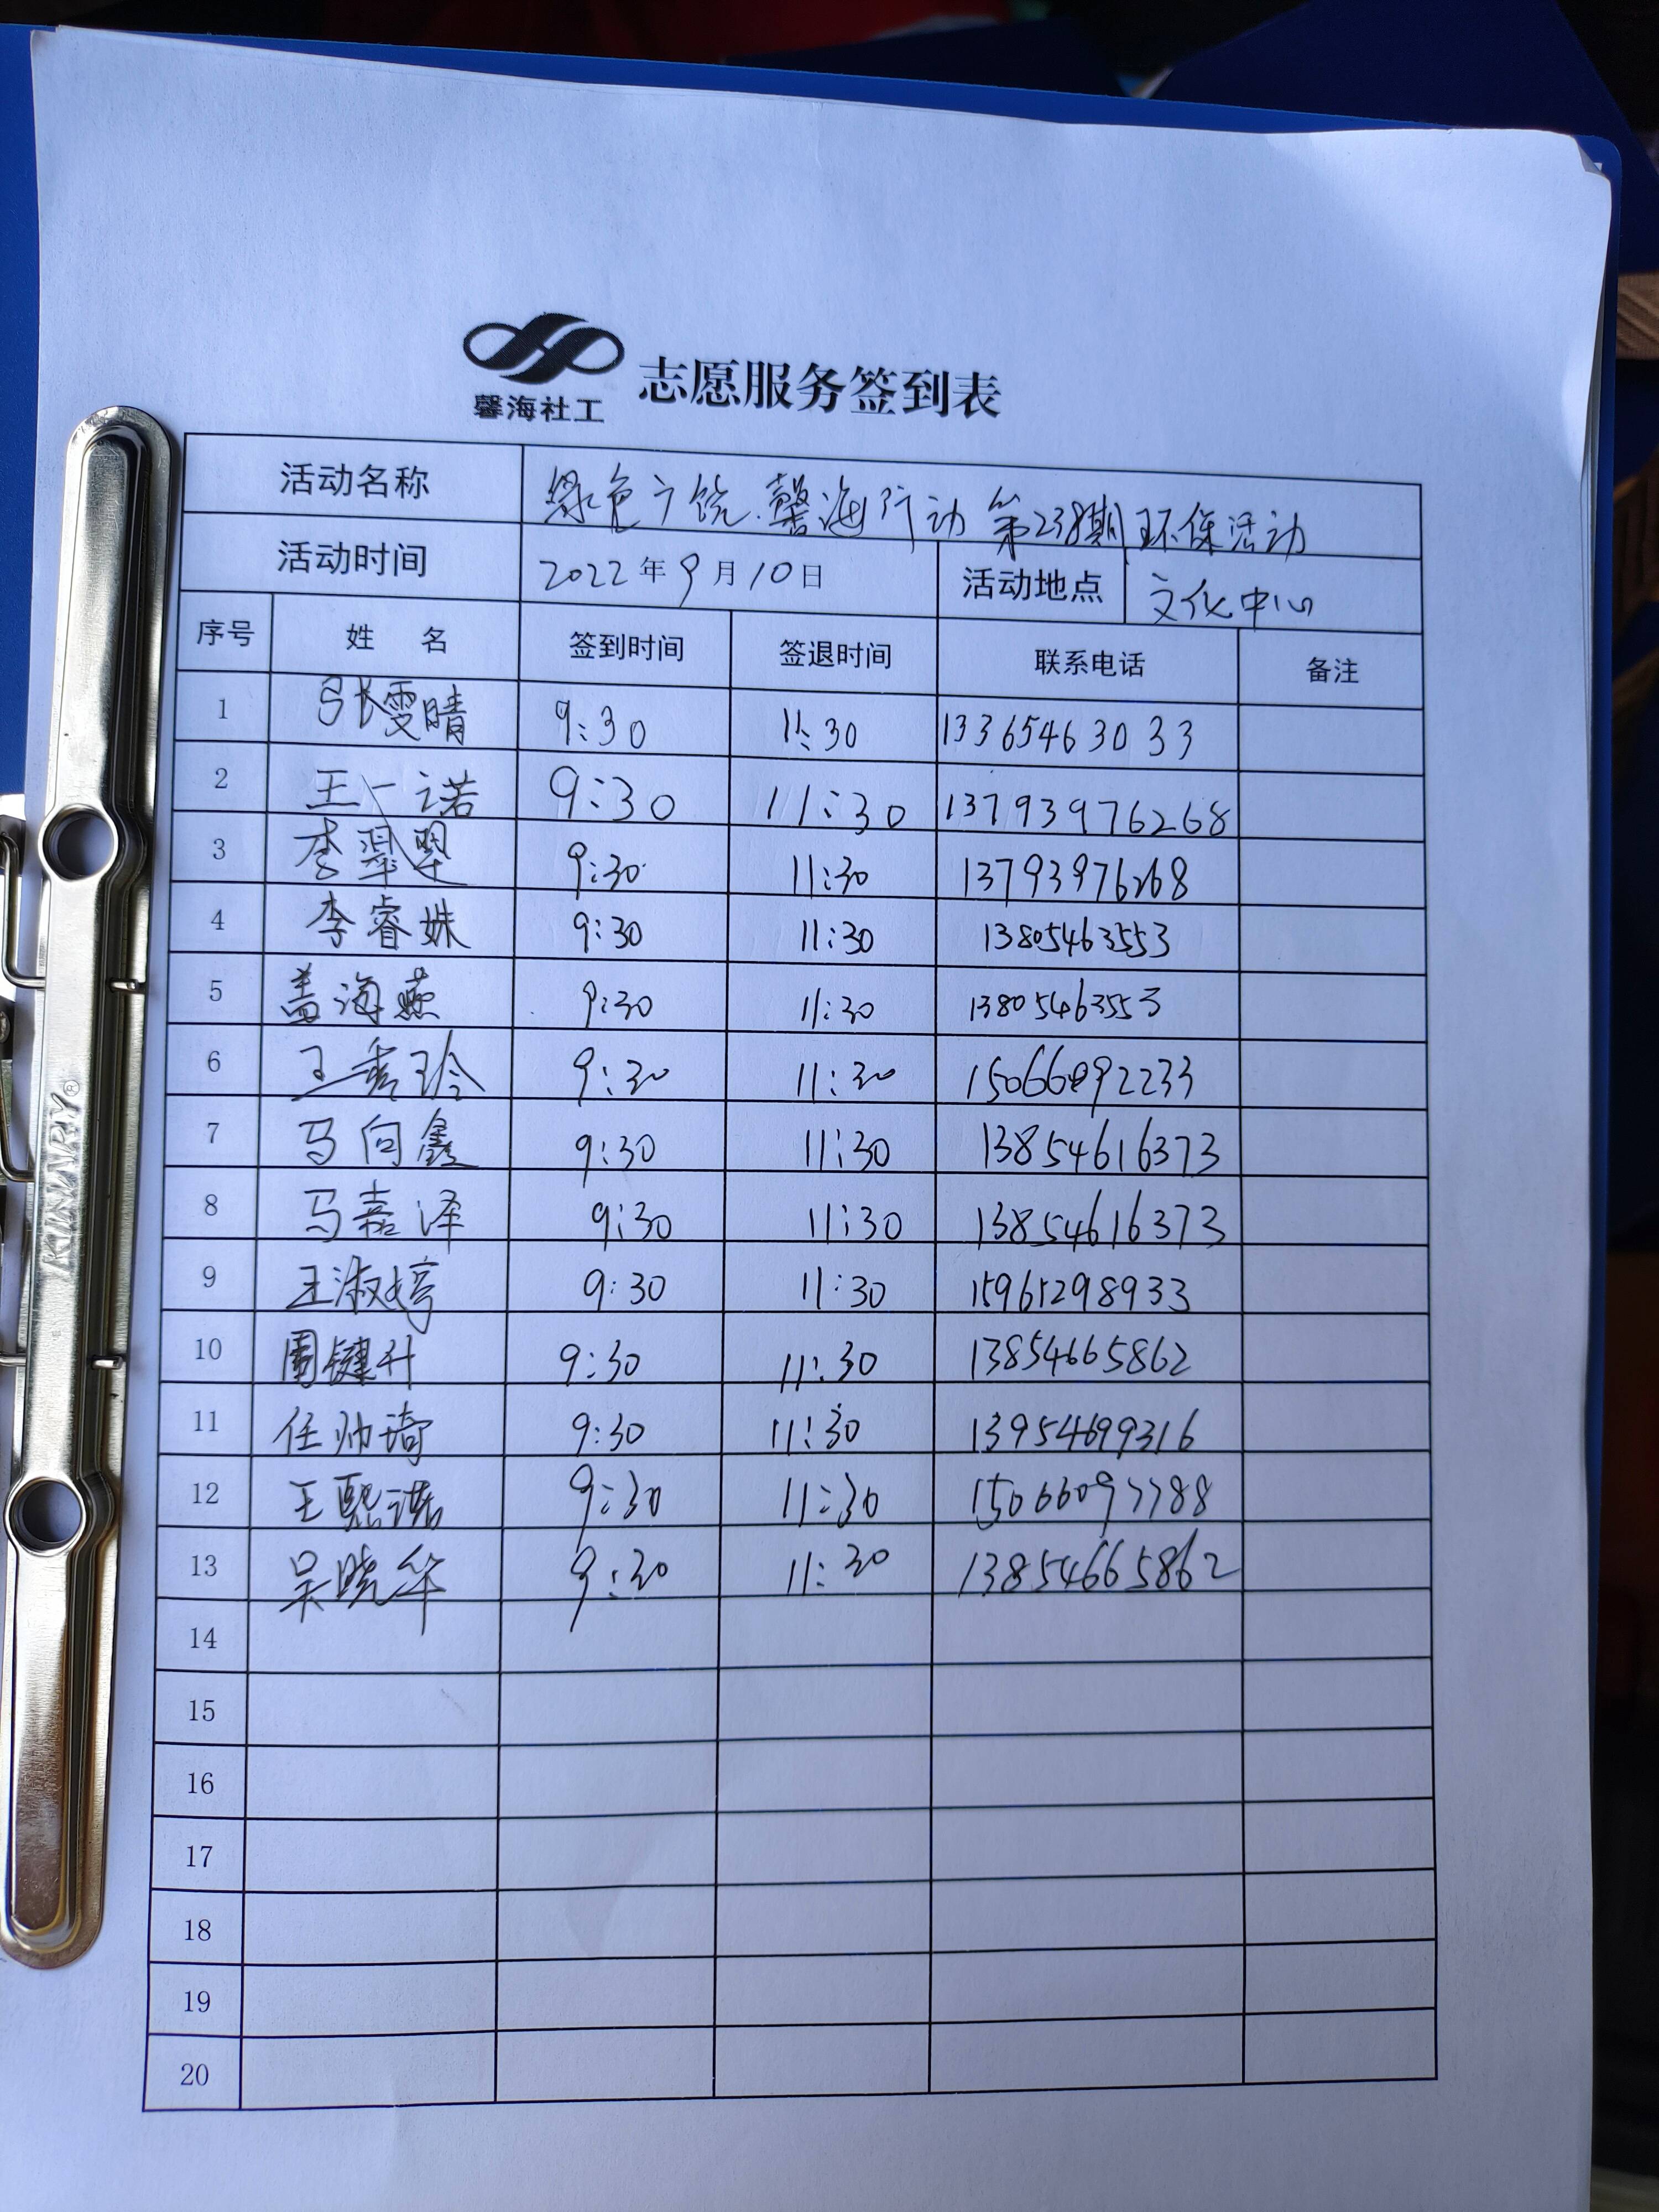 馨海社工 志愿服务签到表
活动名称 绿色广饶.馨海行动 第238期环保活动
活动时间 2022年9月10日 活动地点 文化中心
序号 姓名 签到时间 签退时间 联系电话 备注
1 张雯晴 9:30 11:30 13365463033
2 王一诺 9:30 11:30 13793976268
3 李 9:30 11:30 13793976268
4 李睿姝 9:30 11:30 13805463553
5 盖海燕 9:30 11:30 13805463553
6 王秀玲 9:30 11:30 15066092233
7 马向鑫 9:30 11:30 13854616373
8 马嘉泽 9:30 11:30 13854616373
9 王淑婷 9:30 11:30 15961298933
10 周键升 9:30 11:30 13854665862
11 任帅琦 9:30 11:30 13954699316
12 王熙诺 9:30 11:30
13 吴晓华 9:30 11:30 13854665862
14
15
16
17
18
19
20
KINARY®